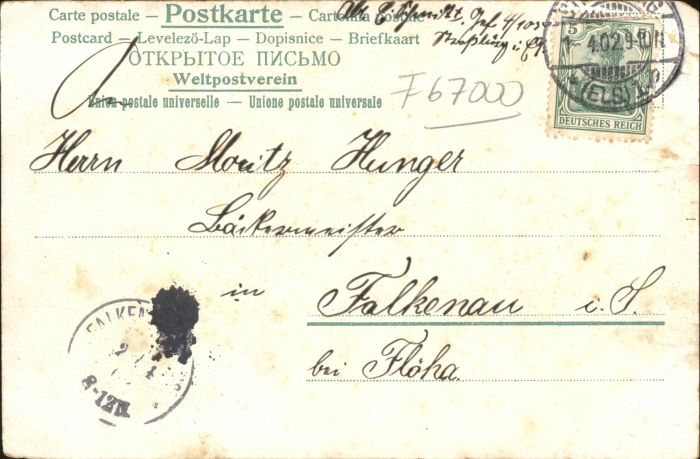 Carte postale – Postkarte – Cartolina postale
Postcard – Levelező-Lap – Dopisnice – Briefkaart
ОТКРЫТОЕ ПИСЬМО
Weltpostverein
Union postale universelle – Unione postale universale
Abs. Inf. 4/105
Straßburg i. Els
5
1. 4.02.9-10N.
(ELS)
DEUTSCHES REICH
F67000
Herrn Moritz Hunger
Bäckermeister
in Falkenau i. S.
bei Flöha.
FALKEN
2 4
8-12V.